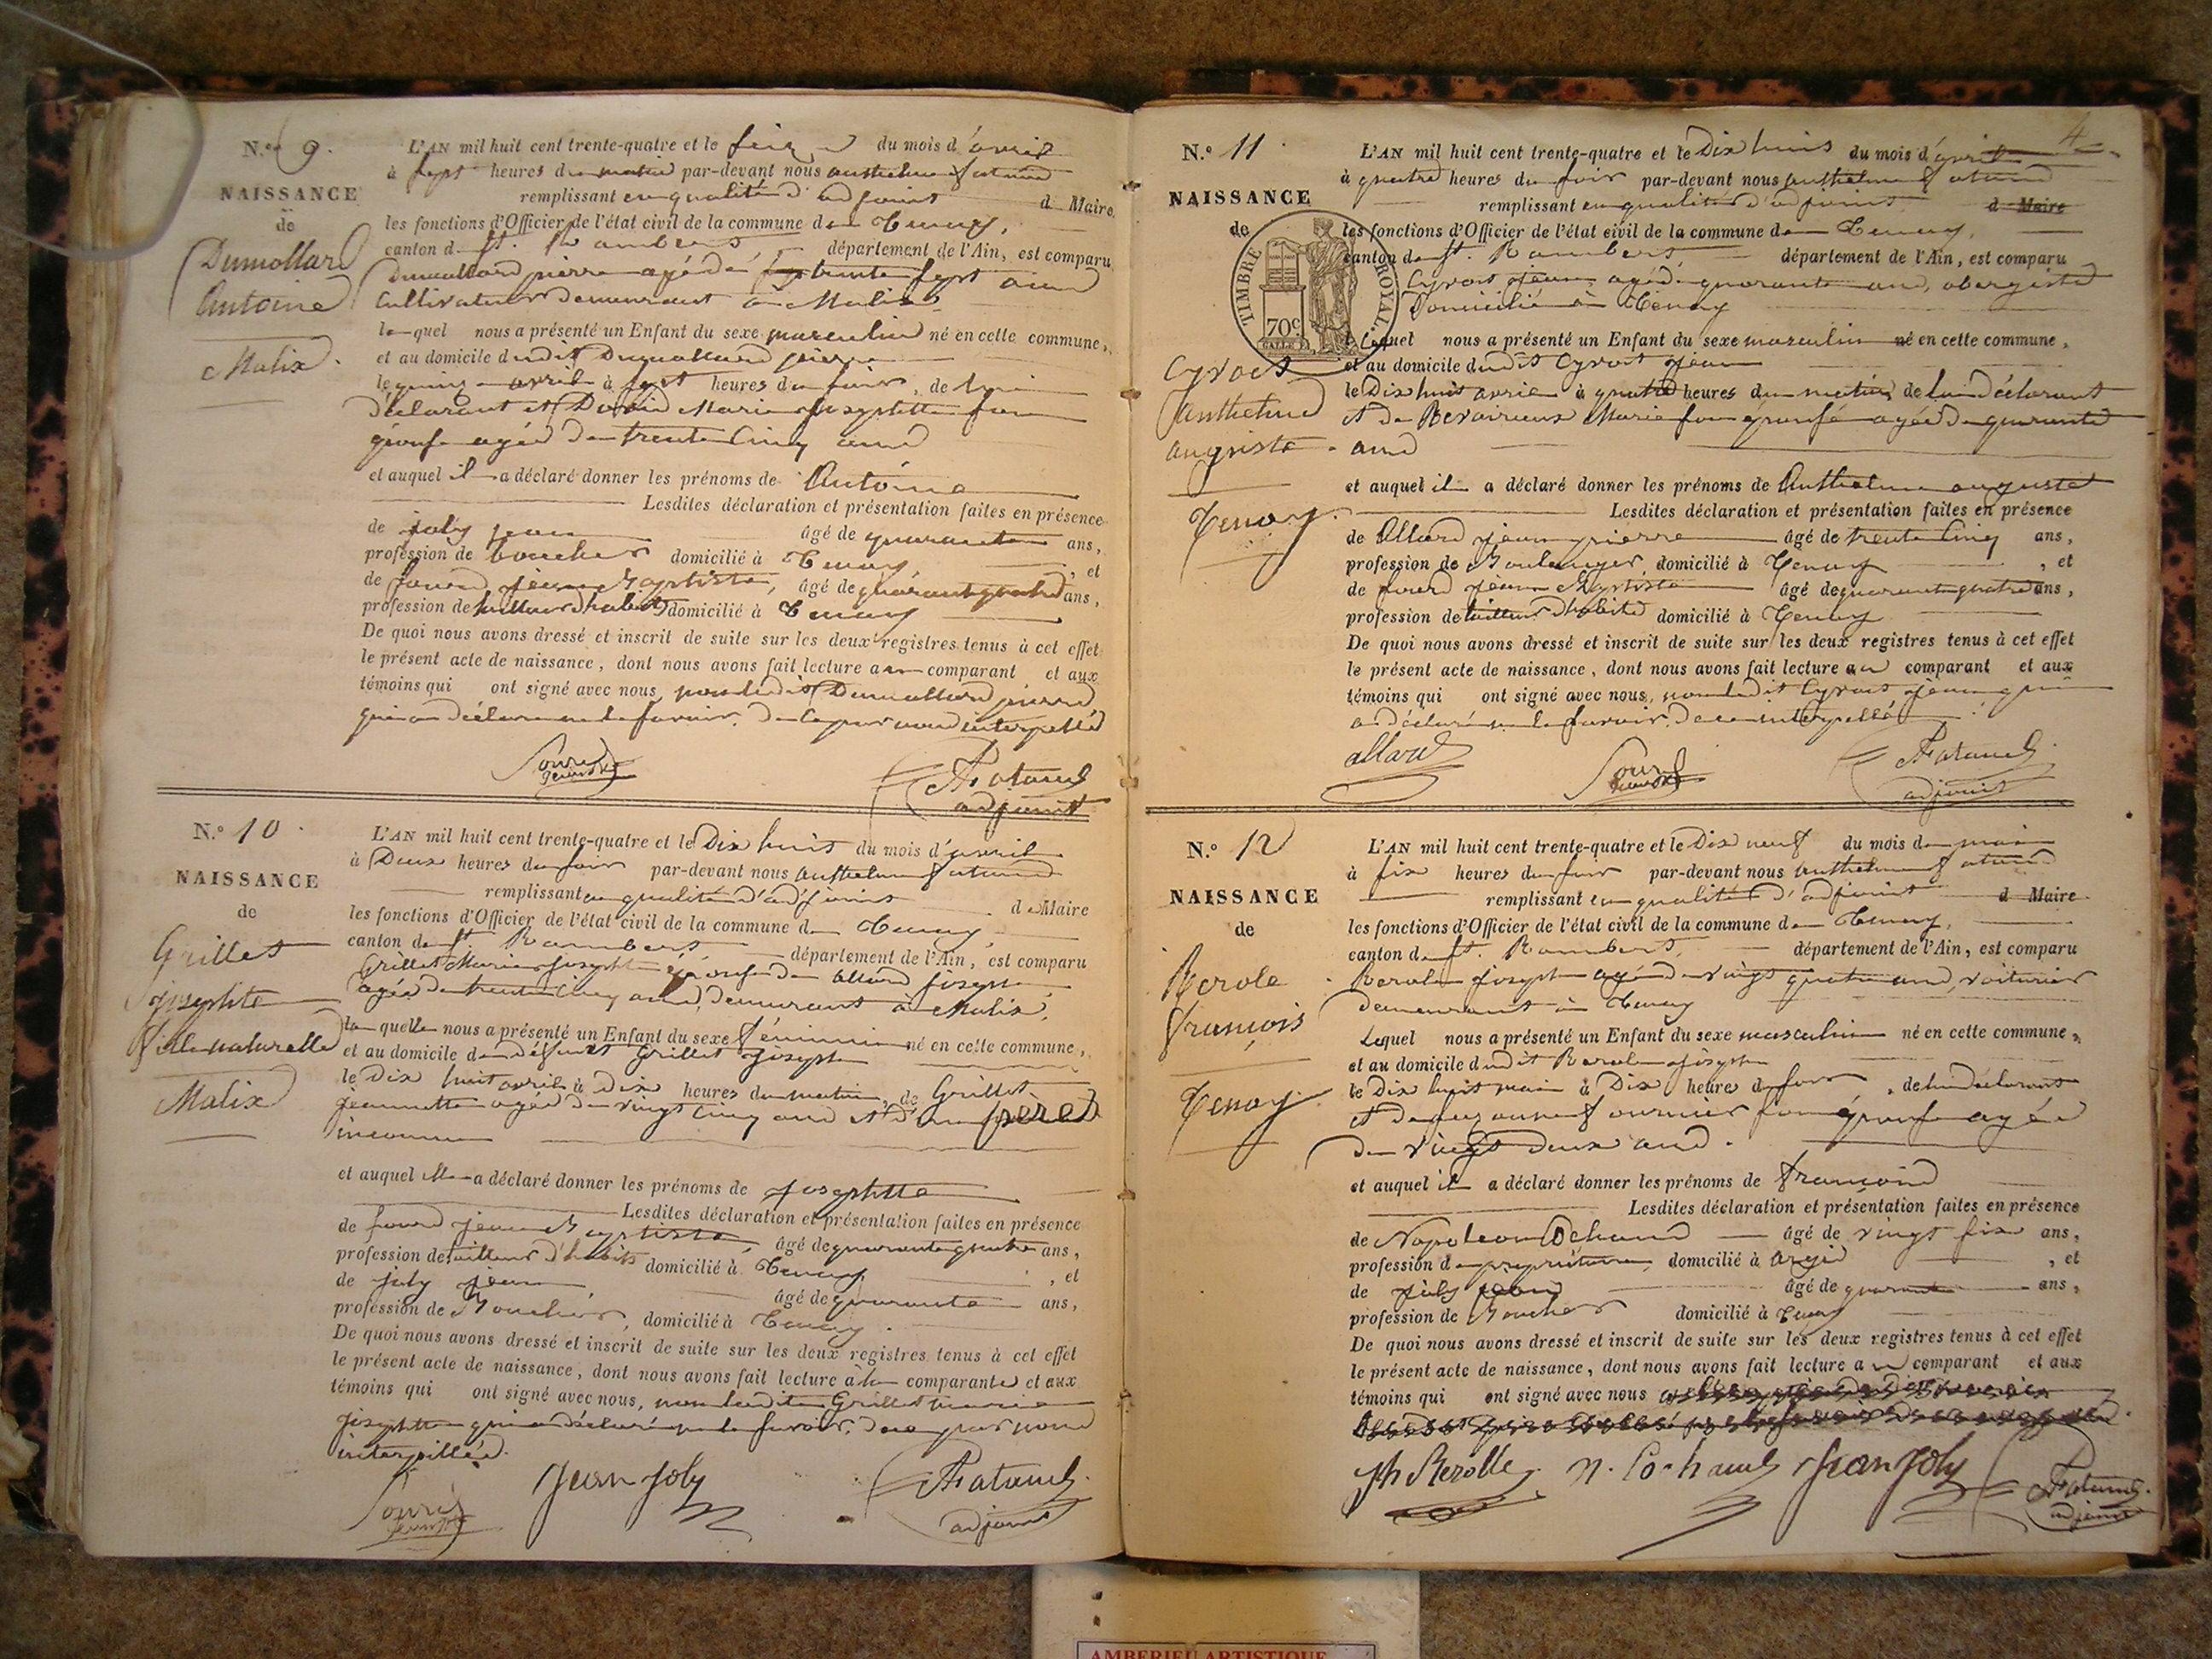 N.º 9.
NAISSANCE
de
Dumollard
Antoine
Malix.
L'AN mil huit cent trente-quatre et le seize du mois d'avril
à sept heures du matin par-devant nous anthelme fatand
remplissant en qualité d'adjoint d Maire
les fonctions d'Officier de l'état civil de la commune de Tenay,
canton de St. Rambert, département de l'Ain, est comparu
Dumollard pierre agé de trente sept ans
Cultivateur demeurant à Malix
lequel nous a présenté un Enfant du sexe masculin né en cette commune,
et au domicile dudit Dumollard pierre
le quinze avril à sept heures du soir, de lui
déclarant et Marie Josephte son
épouse agée de trente Cinq ans
et auquel il a déclaré donner les prénoms de Antoine
Lesdites déclaration et présentation faites en présence
de joly jean âgé de quarante ans,
profession de boucher domicilié à Tenay, et
de fourd jean Baptiste, âgé de quarante quatre ans,
profession de tailleur d'habits domicilié à Tenay
De quoi nous avons dressé et inscrit de suite sur les deux registres tenus à cet effet
le présent acte de naissance, dont nous avons fait lecture au comparant et aux
témoins qui ont signé avec nous, non ledit Dumollard pierre
qui a déclaré ne le savoir, de ce par nous interpellé
Fatand
adjoint
N.º 10.
NAISSANCE
de
Grillet
josephte
fille naturelle
Malix
L'AN mil huit cent trente-quatre et le Dix huit du mois d'avril
à Deux heures du soir par-devant nous anthelme fatand
remplissant en qualité d'adjoint d Maire
les fonctions d'Officier de l'état civil de la commune de Tenay,
canton de St. Rambert département de l'Ain, est comparu
Grillet Marie Josephte épouse de allard joseph
agée de trente Cinq ans, demeurant à Malix,
laquelle nous a présenté un Enfant du sexe féminin né en cette commune,
et au domicile de défunt Grillet joseph
le Dix huit avril à Dix heures du matin, de Grillet
jeannette agée de vingt Cinq ans et d'un pere
inconnu
et auquel elle a déclaré donner les prénoms de josephtte
Lesdites déclaration et présentation faites en présence
de fourd jean Baptiste, âgé de quarante quatre ans,
profession de tailleur d'habits domicilié à Tenay, et
de joly jean âgé de quarante ans,
profession de Boucher, domicilié à Tenay.
De quoi nous avons dressé et inscrit de suite sur les deux registres tenus à cet effet
le présent acte de naissance, dont nous avons fait lecture à la comparante et aux
témoins qui ont signé avec nous, non ladite Grillet marie
josephtte qui a déclaré ne le savoir, de ce par nous
interpellée.
Jean Joly
Fatand
adjoint
4
N.º 11.
NAISSANCE
de
TIMBRE ROYAL.
70c
Cyvoct
anthelme
auguste.
Tenay.
L'AN mil huit cent trente-quatre et le Dix huit du mois d'avril
à quatre heures du soir par-devant nous anthelme fatand
remplissant en qualité d'adjoint d Maire
les fonctions d'Officier de l'état civil de la commune de Tenay,
canton de St. Rambert département de l'Ain, est comparu
Cyvoct jean, agé de quarante ans, obergiste
Domicilié à Tenay
Lequel nous a présenté un Enfant du sexe masculin né en cette commune,
et au domicile dudit Cyvoct jean
le Dix huit avril à quatre heures du matin, de lui déclarant
et de Marie son épouse agée de quarante
ans
et auquel il a déclaré donner les prénoms de Anthelme auguste
Lesdites déclaration et présentation faites en présence
de Allard jean pierre âgé de trente Cinq ans,
profession de Boulanger, domicilié à Tenay, et
de fourd jean Baptiste âgé de quarante quatre ans,
profession de tailleur d'habits domicilié à Tenay
De quoi nous avons dressé et inscrit de suite sur les deux registres tenus à cet effet
le présent acte de naissance, dont nous avons fait lecture au comparant et aux
témoins qui ont signé avec nous, non ledit Cyvoct jean qui
a déclaré ne le savoir, de ce interpellé
allard
Fatand
adjoint
N.º 12
NAISSANCE
de
Berole
François
Tenay.
L'AN mil huit cent trente-quatre et le Dix neuf du mois de mai
à six heures du soir par-devant nous anthelme fatand
remplissant en qualité d'adjoint d Maire
les fonctions d'Officier de l'état civil de la commune de Tenay,
canton de St. Rambert, département de l'Ain, est comparu
Berole joseph agé de vingt quatre ans, voiturier
demeurant à Tenay
Lequel nous a présenté un Enfant du sexe masculin né en cette commune,
et au domicile dudit Berole joseph
le Dix huit mai à Dix heures du soir, de lui déclarant
et de suzanne fournier son épouse agée
de vingt deux ans.
et auquel il a déclaré donner les prénoms de françois
Lesdites déclaration et présentation faites en présence
de Napoleon âgé de vingt six ans,
profession de propriétaire, domicilié à argis, et
de joly jean âgé de quarante ans,
profession de Boucher domicilié à Tenay
De quoi nous avons dressé et inscrit de suite sur les deux registres tenus à cet effet
le présent acte de naissance, dont nous avons fait lecture au comparant et aux
témoins qui ont signé avec nous
Jh Berolle
Jean Joly
Fatand
adjoint
AMBERIEU ARTISTIQUE